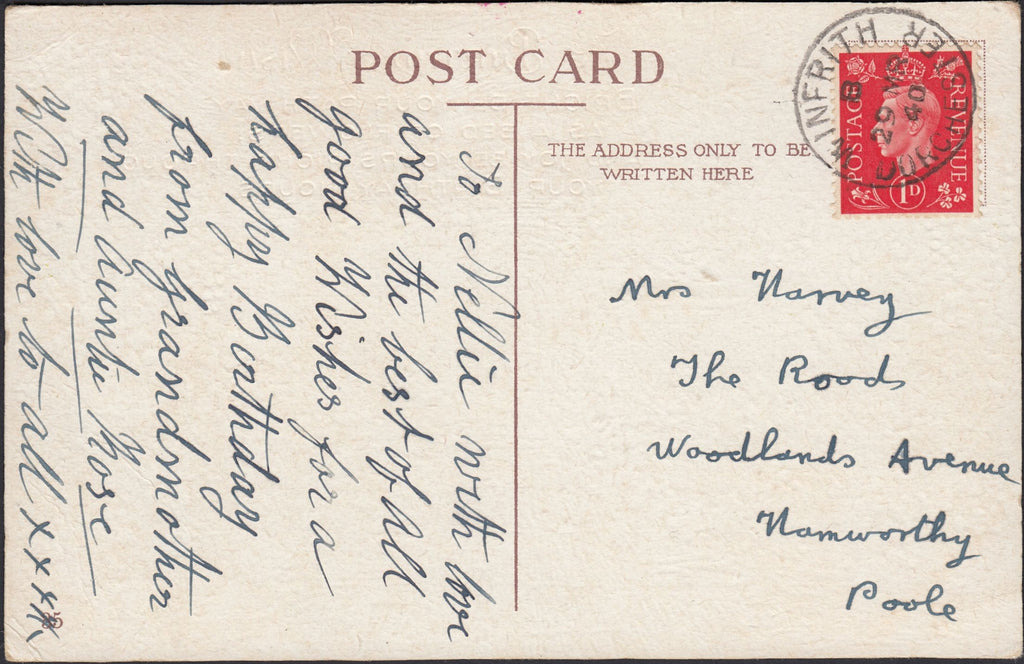 POST CARD
THE ADDRESS ONLY TO BE
WRITTEN HERE
WINFRITH
DORCHESTER
B
29 MR
40
POSTAGE
REVENUE
1D
To Nellie with love
and the best of all
good Wishes for a
happy Birthday
from grandmother
and Auntie Rose
With love to all x x x x
Mrs Harvey
The Roods
Woodlands Avenue
Hamworthy
Poole